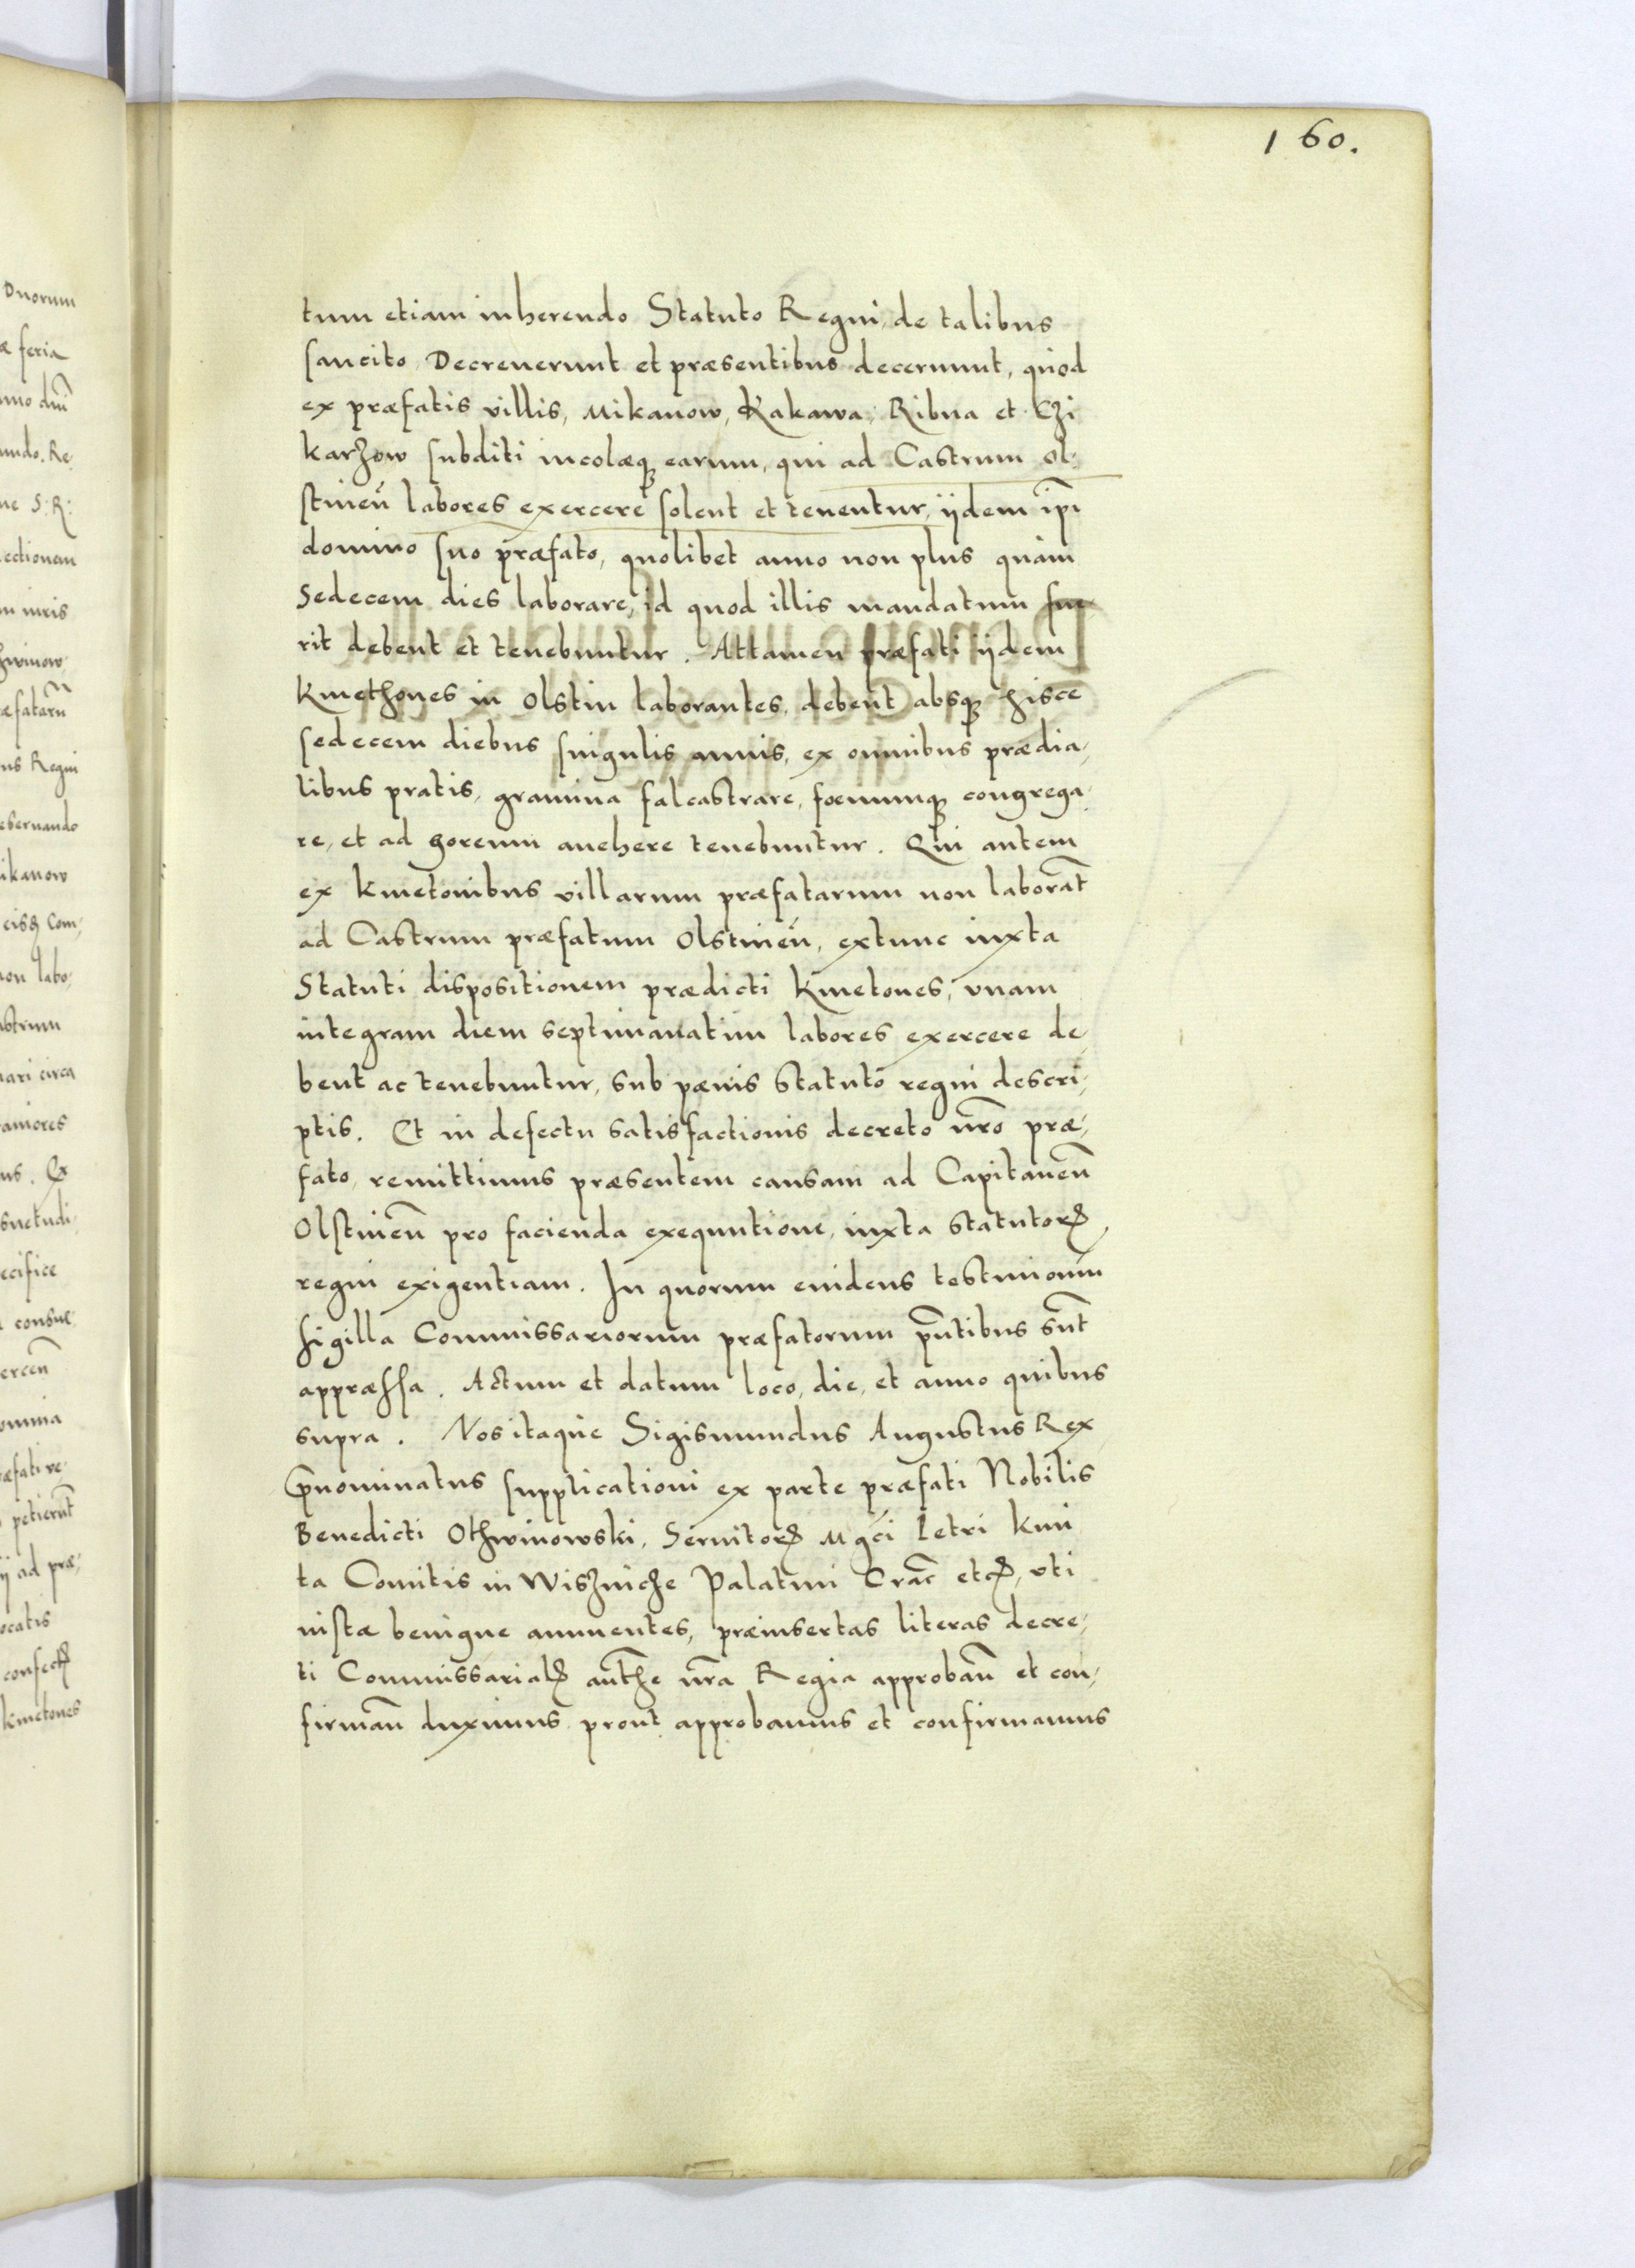 160.
tum etiam inherendo Statuto Regni, de talibus
sancito, Decreuerunt et præsentibus decernunt, quod
ex præfatis villis, Mikanow, Kakawa, Ribna et Czi
karzow subditi incolæq earum, qui ad Castrum Ol-
stineñ labores exercere solent et tenentur, ijdem ipi
domino suo præfato, quolibet anno non plus quàm
Sedecem dies laborare, id quod illis mandatum fue-
rit debent et tenebuntur. Attamen præfati ijdem
kmethones in Olstin laborantes, debent absq hisce
sedecem diebus singulis annis, ex omnibus prædia,
libus pratis, gramina falcastrare, foenumq congrega,
re, et ad horeum auehere tenebuntur. Qui autem
ex kmetonibus villarum præfatarum non laborāt
ad Castrum præfatum Olstineñ, extunc iuxta
Statuti dispositionem prædicti kmetones, vnam
integram diem septimanatim labores exercere de,
bent ac tenebuntur, sub pænis Statuto regni descri,
ptis. Et in defectu satisfactionis decreto nr̄o præ,
fato, remittimus præsentem causam ad Capitaneū
Olstineñ pro facienda exequutione, iuxta statutorꝫ
regni exigentiam. In quorum euidens testimonium
sigilla Commissariorum præfatorum pn̄tibus sūt
appræssa. Actum et datum loco, die, et anno quibus
supra. Nos itaque Sigismundus Augustus Rex
p̄nominatus supplicationi ex parte præfati Nobilis
Benedicti Othwinowski, Seruitorꝫ Mgci Petri kmi
ta Comitis in Wisznicze Palatini Crac̄ etcꝫ, vti
iustæ benigne annuentes, præinsertas literas decre,
ti Commissarialꝫ aut̄he nr̄a Regia approbañ et con,
firmañ duximus prout approbamus et confirmamus
Dnorum
æ feria
nno dn̄i
ando. Re
ne S: R:
ectionem
m iuris
hwinow
æfatarū
us Regni
bernando
ikanow
eisꝫ Com,
non labo,
strum
ari circa
aniores
us. Ex
suetudi,
ecifice
consue
erceñ
omnia
æfati re,
petierūt
ij ad præ,
ocatis
confectꝫ
kmetones